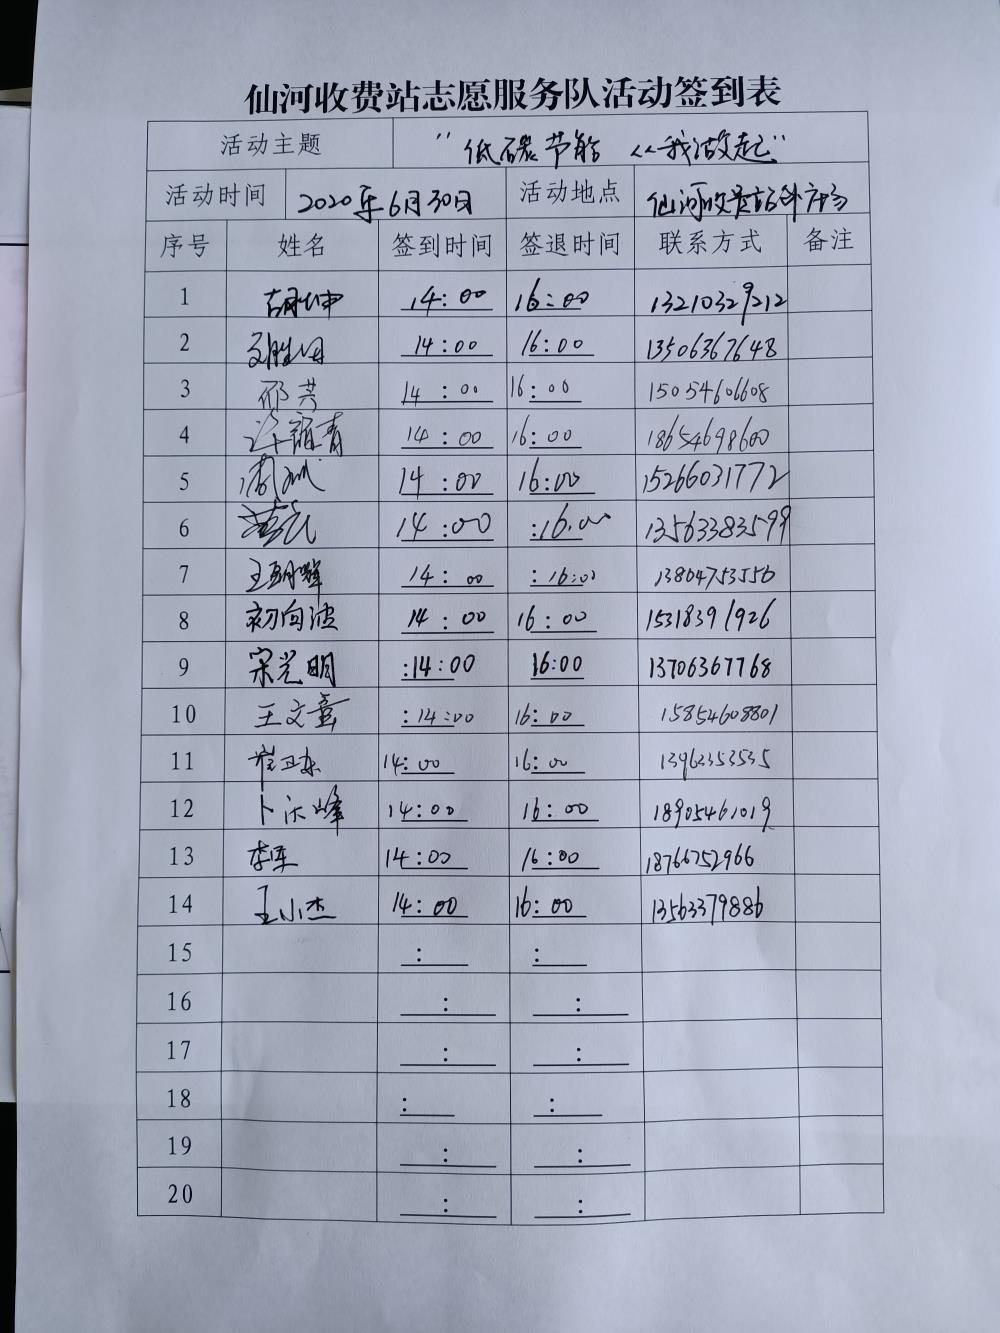 仙河收费站志愿服务队活动签到表
活动主题 "低碳节能 从我做起"
活动时间 2020年6月30日 活动地点 仙河收费站外广场
序号 姓名 签到时间 签退时间 联系方式 备注
1 胡坤 14:00 16:00 13210329212
2 14:00 16:00 13506367648
3 邢芳 14:00 16:00 15054606608
4 14:00 16:00 18654698600
5 14:00 16:00 15266031772
6 14:00 :16:00 13563383599
7 14:00 :16:00 13864753556
8 初向波 14:00 16:00 15318391926
9 宋光明 :14:00 16:00 13706367768
10 王文意 :14:00 16:00 15854608801
11 崔卫东 14:00 16:00 13963353535
12 卜沃峰 14:00 16:00 18905461019
13 李军 14:00 16:00 18766752966
14 王小杰 14:00 16:00 13563379886
15 : :
16 : :
17 : :
18 : :
19 : :
20 : :